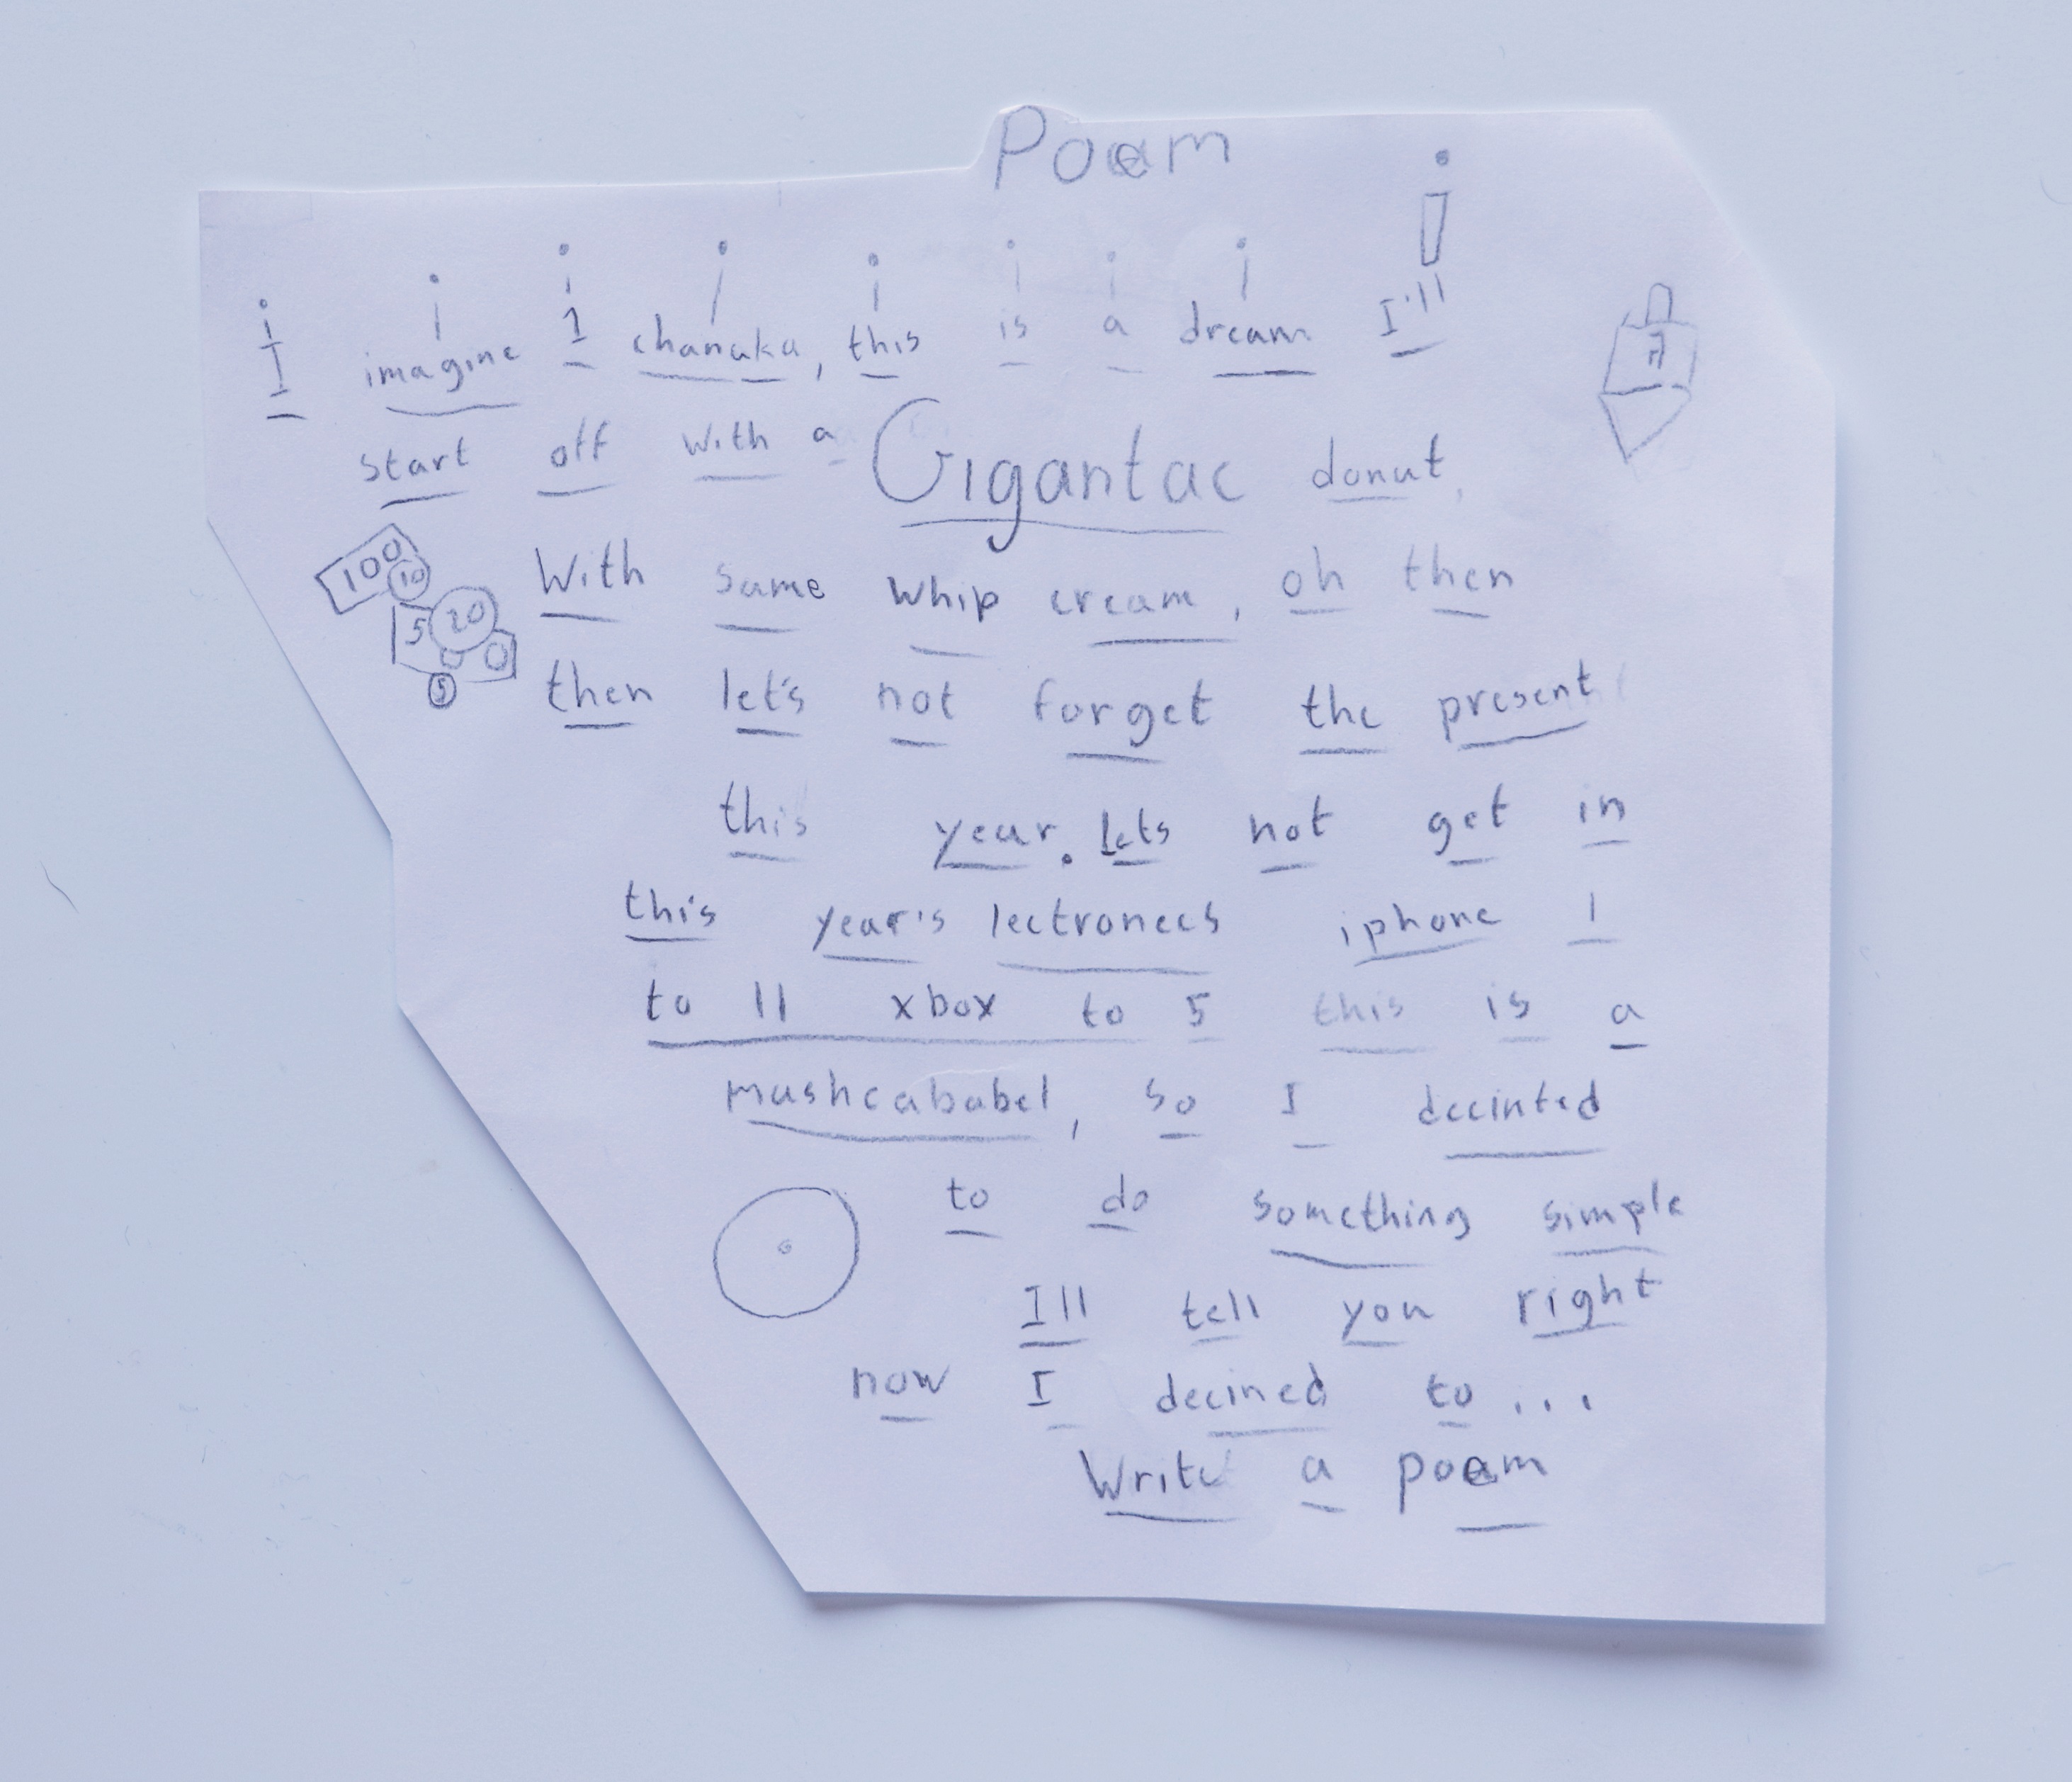 Poem
I imagine 1 chanuka, this is a dream I'll
start off with a Gigantac donut,
With some whip cream, oh then
then let's not forget the present
this year. lets not get in
this year's lectronecs iphone 1
to 11 xbox to 5 this is a
mashcababel, so I decinted
to do something simple
I'll tell you right
now I decined to...
Write a poem
100
10
5
20
5